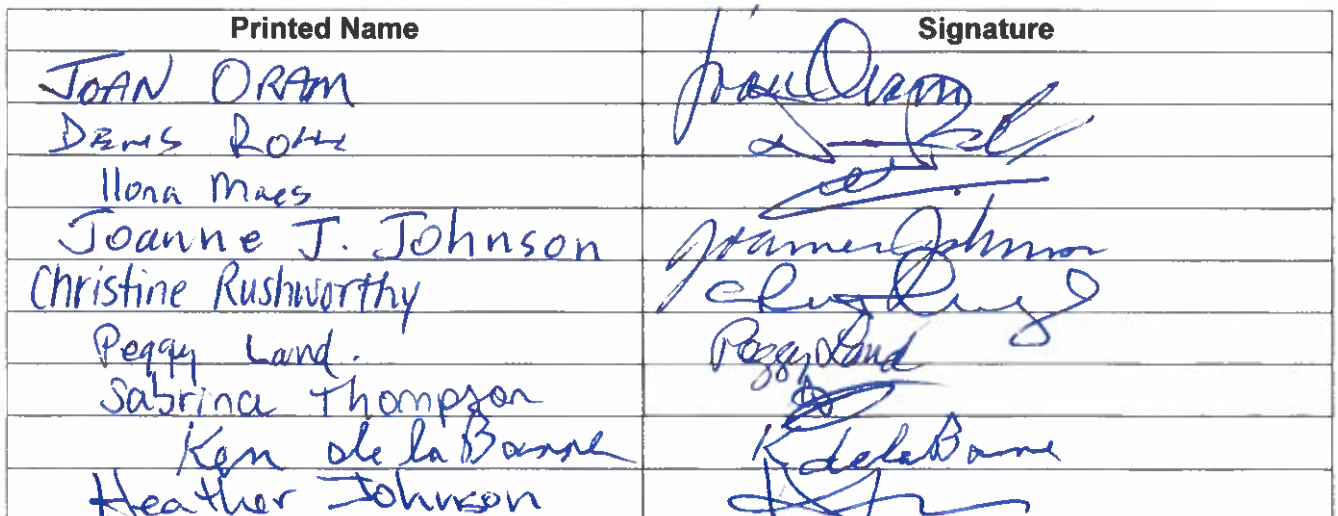 Printed Name Signature
JOAN ORAM Joan Oram
Denis
Ilona Maes
Joanne J. Johnson Joanne Johnson
Christine Rushworthy
Peggy Land. Peggy Land
Sabrina Thompson
Ken de la Barre K de la Barre
Heather Johnson